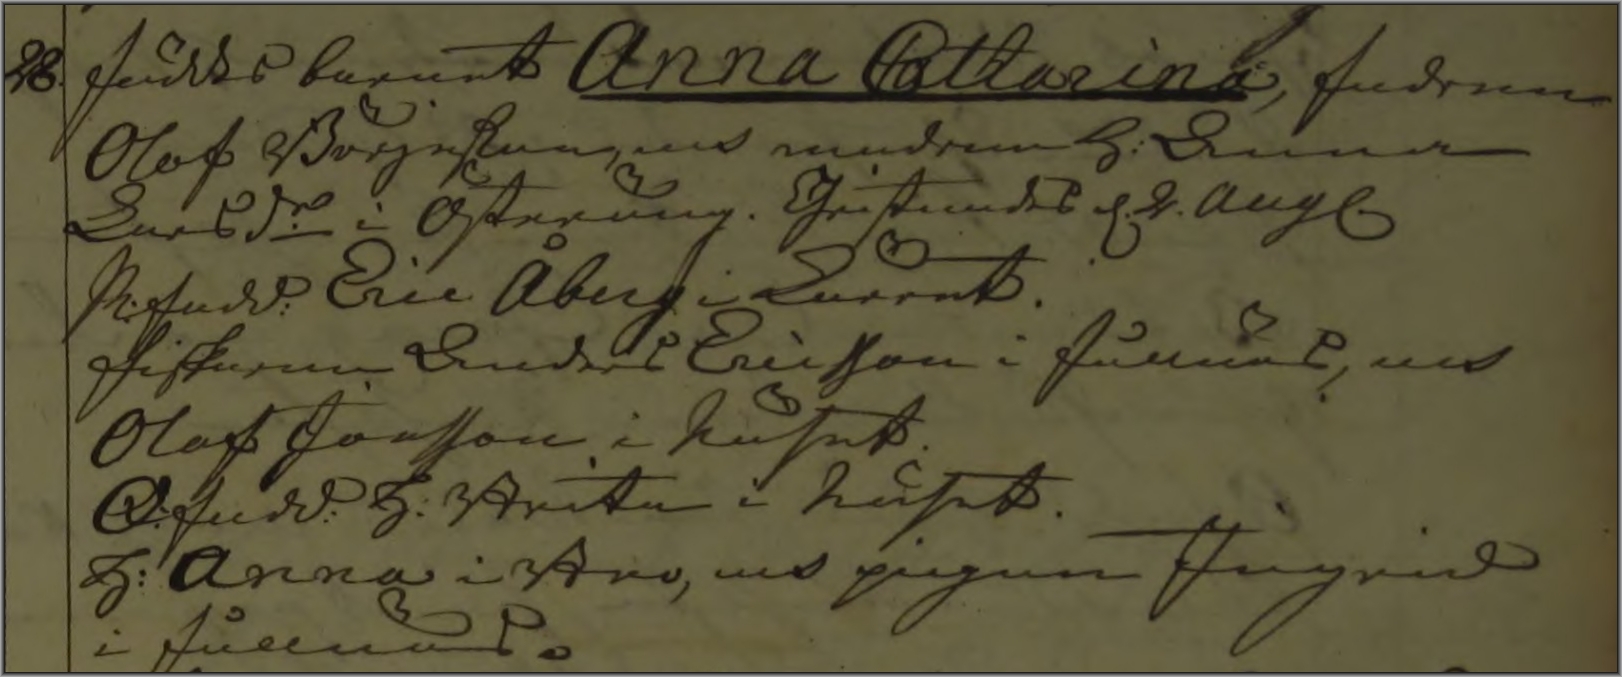 28. föddes barnet Anna Catharina, fadren
Olof Börjesson, och modren H: Anna
Larsdr i Österäng. Christnades d. 2. Aug
M. fadd: Eric Åberg i Larët.
fiskaren Anders Ericsson i Fullnäs, och
Olof Jonsson i huset.
Q. fadd: H: Brita i huset.
H: Anna i Bro, och pigan Ingrid
i Fullnäs.